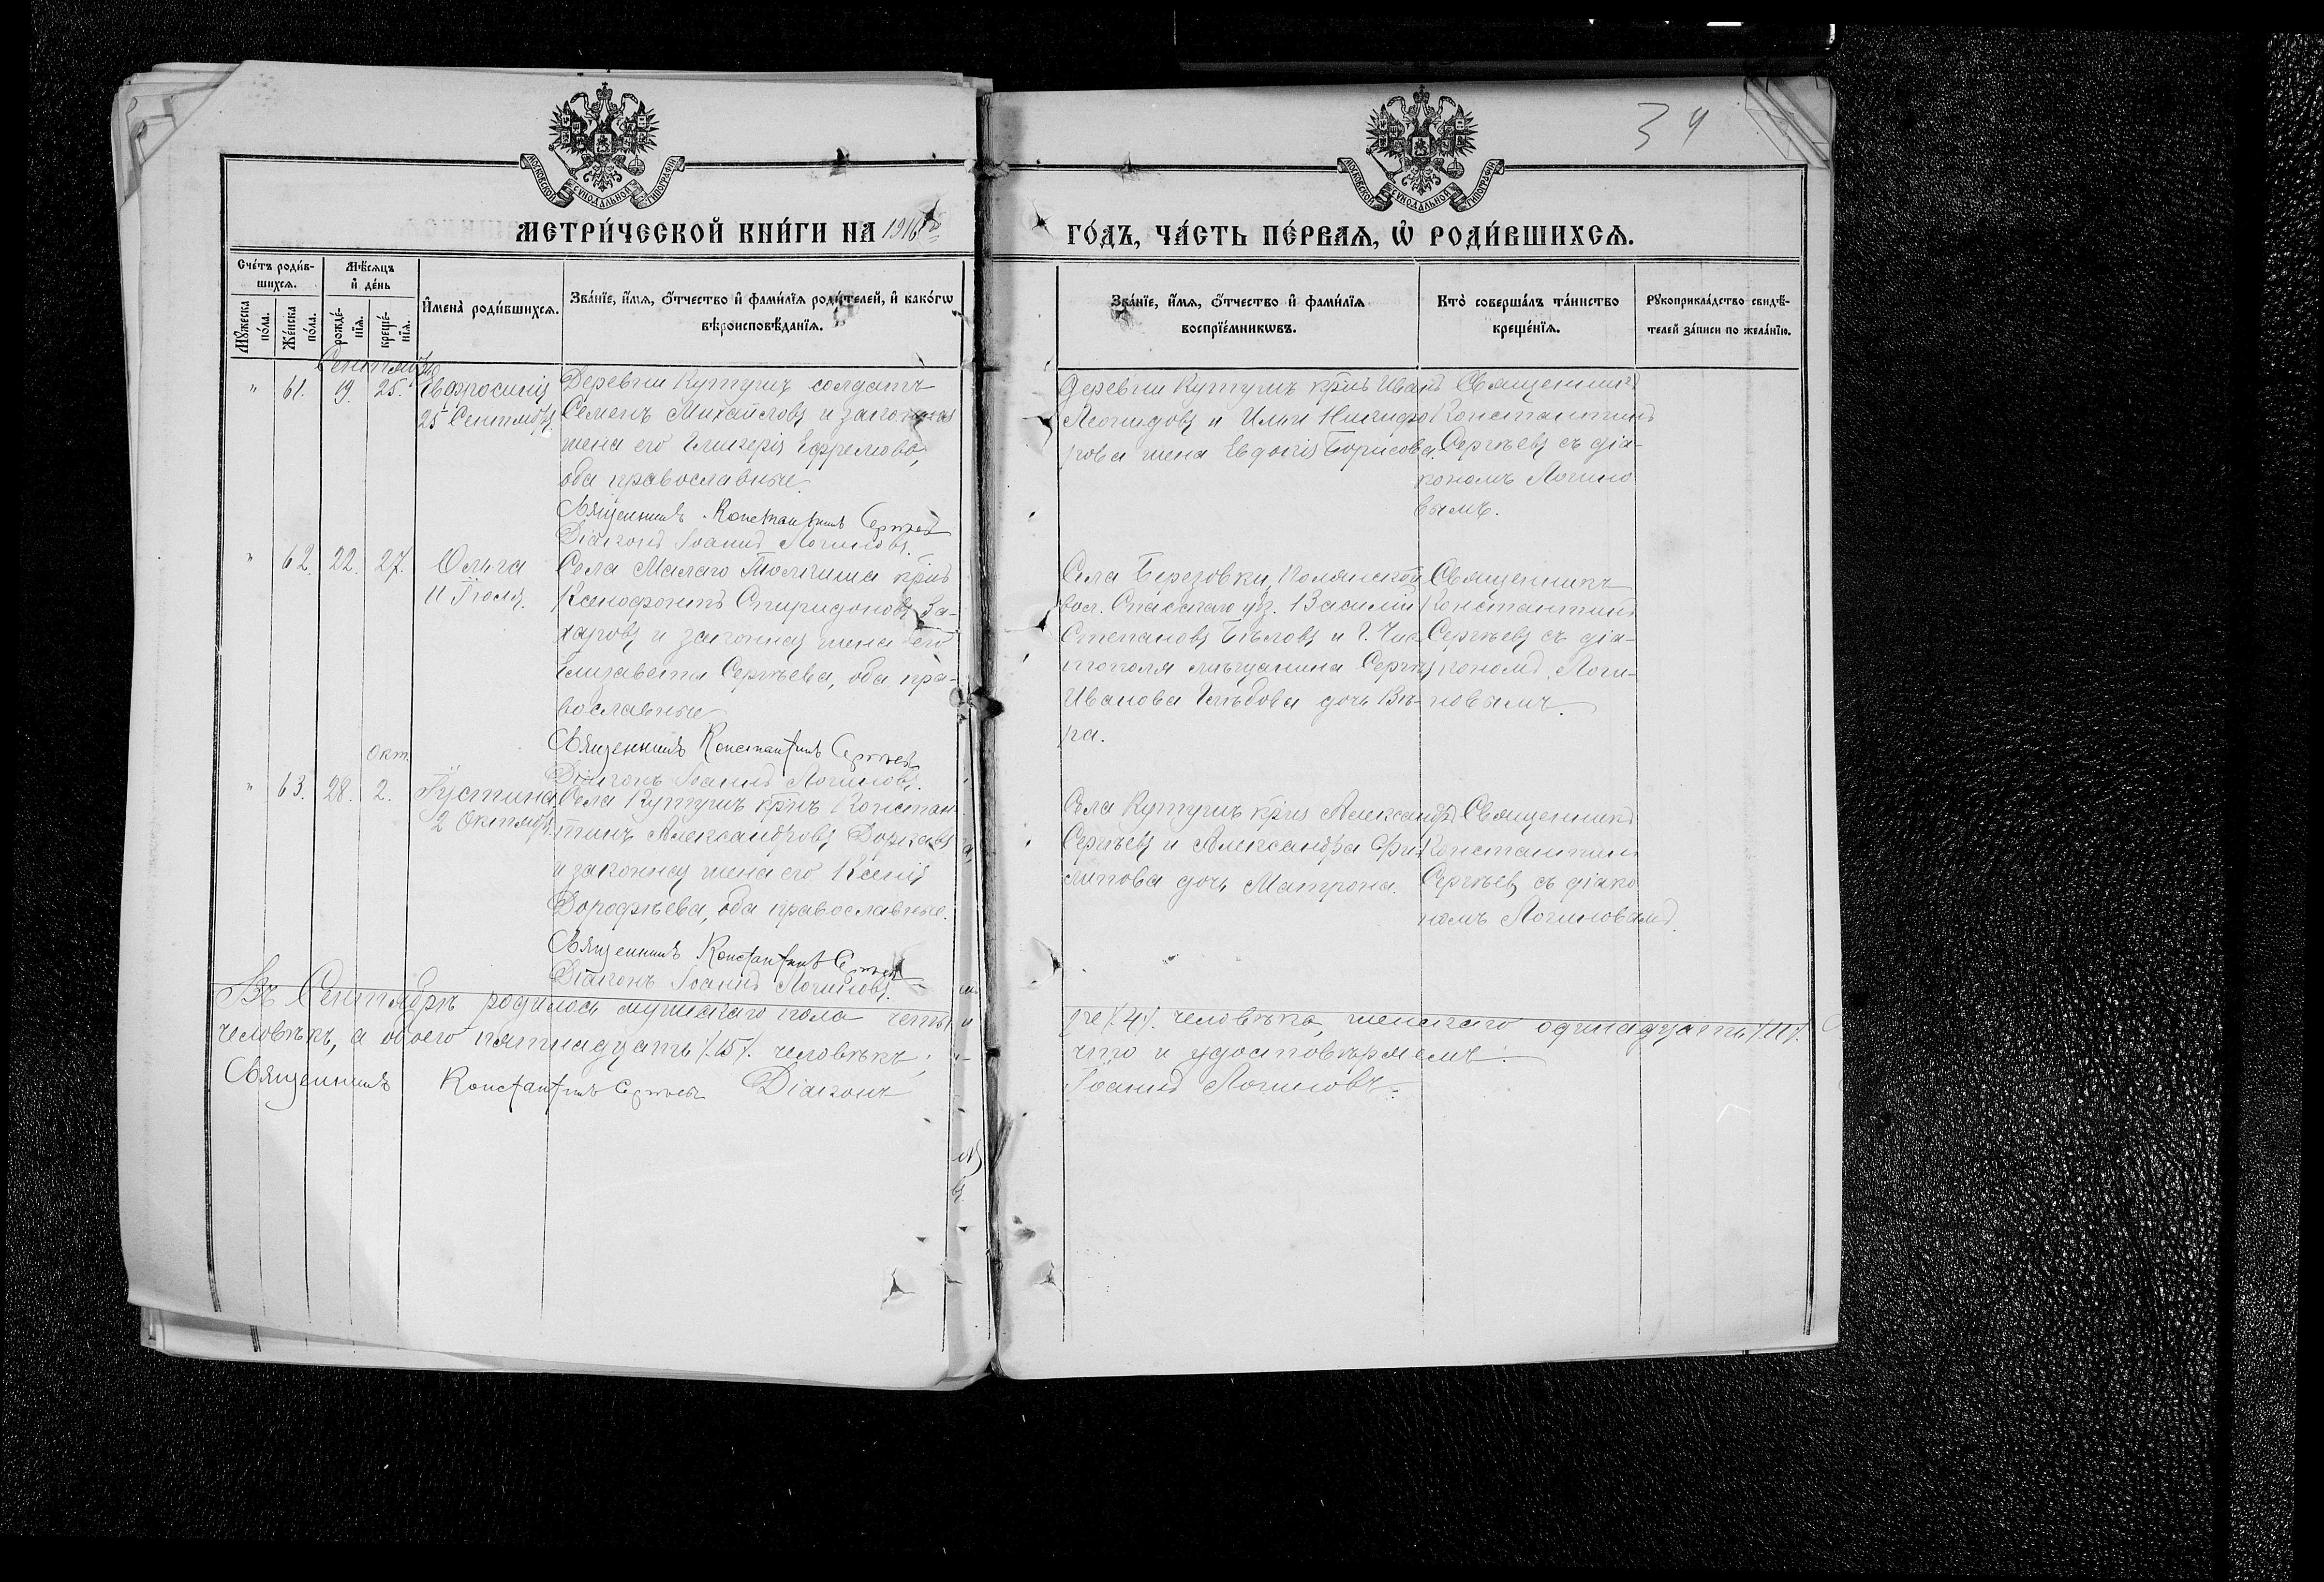 34
МОСКОВСКОЙ СѴНОДАЛЬНОЙ ТИПОГРАФІИ
МОСКОВСКОЙ СѴНОДАЛЬНОЙ ТИПОГРАФІИ
МЕТРИ́ЧЕСКОЙ КНИ́ГИ НА 1916
ГО́ДЪ, ЧА́СТЬ ПЕ́РВАѦ, Ѡ҆ РОДИ́ВШИХСѦ.
Сче́тъ роди́в-
шихсѧ.
Мꙋ́жеска по́ла.
Же́нска по́ла.
Мѣ́сѧцъ
и҆ де́нь
рожде́-
нїѧ.
креще́-
нїѧ.
И҆мена̀ роди́вшихсѧ.
Зва́нїе, и҆́мѧ, ѻ҆́тчество и҆ фами́лїѧ роди́телей, и҆ како́гѡ
вѣроисповѣ́данїѧ.
Зва́нїе, и҆́мѧ, ѻ҆́тчество и҆ фами́лїѧ
воспрїе́мникѡвъ.
Кто̀ соверша́лъ та́инство
креще́нїѧ.
Рꙋкоприкла́дство свидѣ́-
телей за́писи по жела́нїю.
Сентябрь
" 61. 19. 25. Евфросинія
25 Сентября.
Деревни Кутушъ солдатъ
Семенъ Михайловъ и законная
жена его Гликерія Ефремова,
оба православные.
Священникъ Константинъ Сергѣевъ
Діаконъ Іоаннъ Логиновъ.
Деревни Кутушъ кр̃нъ Иванъ
Леонидовъ и Ильи Никифо
рова жена Евдокія Борисова.
Священникъ
Константинъ
Сергѣевъ съ діа-
кономъ Логино
вымъ.
" 62. 22. 27. Ольга
11 Іюля.
Села Малаго Толкиша кр̃нъ
Ксенофонтъ Спиридоновъ За-
харовъ и законная жена его
Елизавета Сергѣева, оба пра-
вославные
Священникъ Константинъ Сергѣевъ
Діаконъ Іоаннъ Логиновъ.
Села Березовки, Полянской
вол. Спасскаго уѣз. Василій
Степановъ Бѣловъ и г. Чис
тополя мѣщанина Сергѣя
Иванова Глѣбова дочь Вѣ-
ра.
Священникъ
Константинъ
Сергѣевъ съ діа-
кономъ Логи-
новымъ.
Окт.
" 63. 28. 2. Іустина
2 Октября.
Села Кутушъ кр̃нъ Констан
тинъ Александровъ
и законная жена его Ксенія
Дорофѣева, оба православные.
Священникъ Константинъ Сергѣевъ
Діаконъ Іоаннъ Логиновъ.
Села Кутушъ кр̃нъ Александръ
Сергѣевъ и Александра Фи-
липова дочь Матрона.
Священникъ
Константинъ
Сергѣевъ съ діако
номъ Логиновымъ.
Въ Сентябрѣ родилось мужскаго пола четы
ре /.4/. человѣка, женскаго одинадцать /.11/.
человѣкъ, а обоего пятнадцать /.15/. человѣкъ;
что и удостовѣряемъ:
Священникъ Константинъ Сергѣевъ Діаконъ
Іоаннъ Логиновъ.